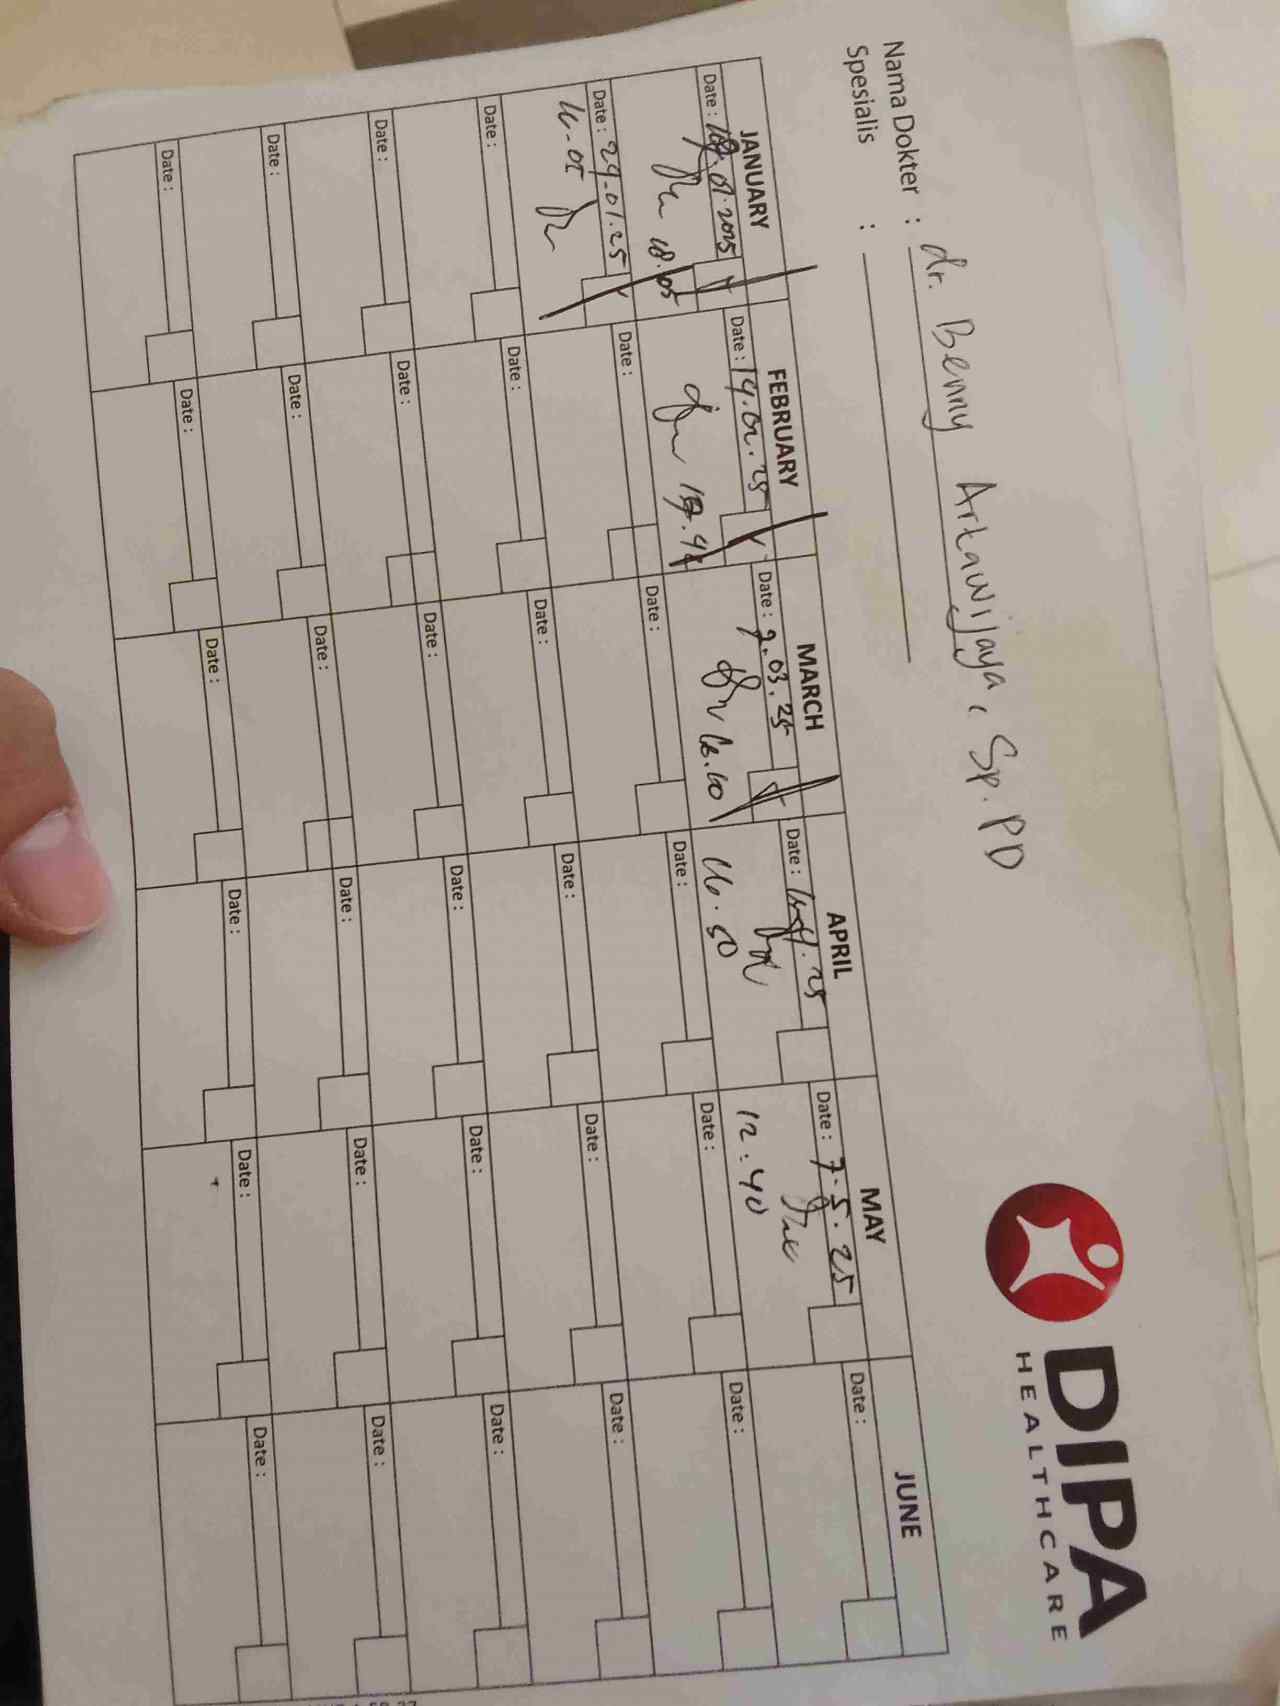 DIPA
HEALTHCARE
Nama Dokter : dr. Benny Artawijaya, Sp.PD
Spesialis :
JANUARY FEBRUARY MARCH APRIL MAY JUNE
Date : .01.2025 Date : 19.02.25 Date : 7.03.25 Date : .4.25 Date : 7.5.25 Date :
18.05 16.50 12:40
Date : 29.01.25 Date : Date : Date : Date : Date :
Date : Date : Date : Date : Date : Date :
Date : Date : Date : Date : Date : Date :
Date : Date : Date : Date : Date : Date :
Date : Date : Date : Date : Date : Date :